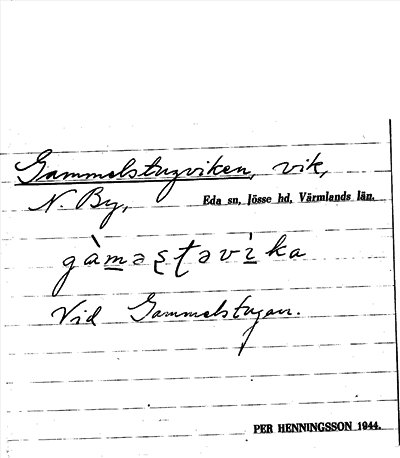 Gammelstugviken, vik,
N. By, Eda sn, Jösse hd, Värmlands län.
gàm̲əʂʈəvì̲ka
Vid Gammelstugan.
PER HENNINGSSON 1944.